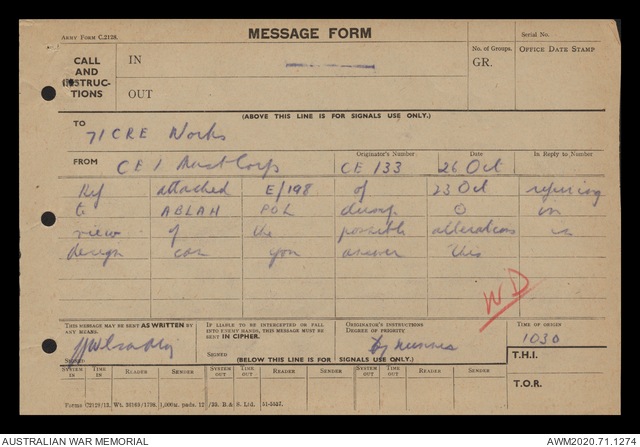 ARMY FORM C.2128.
MESSAGE FORM
Serial No.
CALL AND INSTRUC-TIONS
IN
No. of Groups. GR.
OFFICE DATE STAMP
OUT
(ABOVE THIS LINE IS FOR SIGNALS USE ONLY.)
TO 71 CRE Works
FROM CE 1 Aust Corps
Originator's Number CE 133
Date 26 Oct
In Reply to Number
Ref attached E/198 of 23 Oct referring
to ABLAH POL dump O in
view of the possible alterations in
design can you answer this
WD
THIS MESSAGE MAY BE SENT AS WRITTEN BY ANY MEANS.
SIGNED
IF LIABLE TO BE INTERCEPTED OR FALL INTO ENEMY HANDS, THIS MESSAGE MUST BE SENT IN CIPHER.
SIGNED
ORIGINATOR'S INSTRUCTIONS DEGREE OF PRIORITY
By
TIME OF ORIGIN
1030
(BELOW THIS LINE IS FOR SIGNALS USE ONLY.)
T.H.I.
SYSTEM IN TIME IN READER SENDER SYSTEM OUT TIME OUT READER SENDER SYSTEM OUT TIME OUT READER SENDER
T.O.R.
AUSTRALIAN WAR MEMORIAL
AWM2020.71.1274